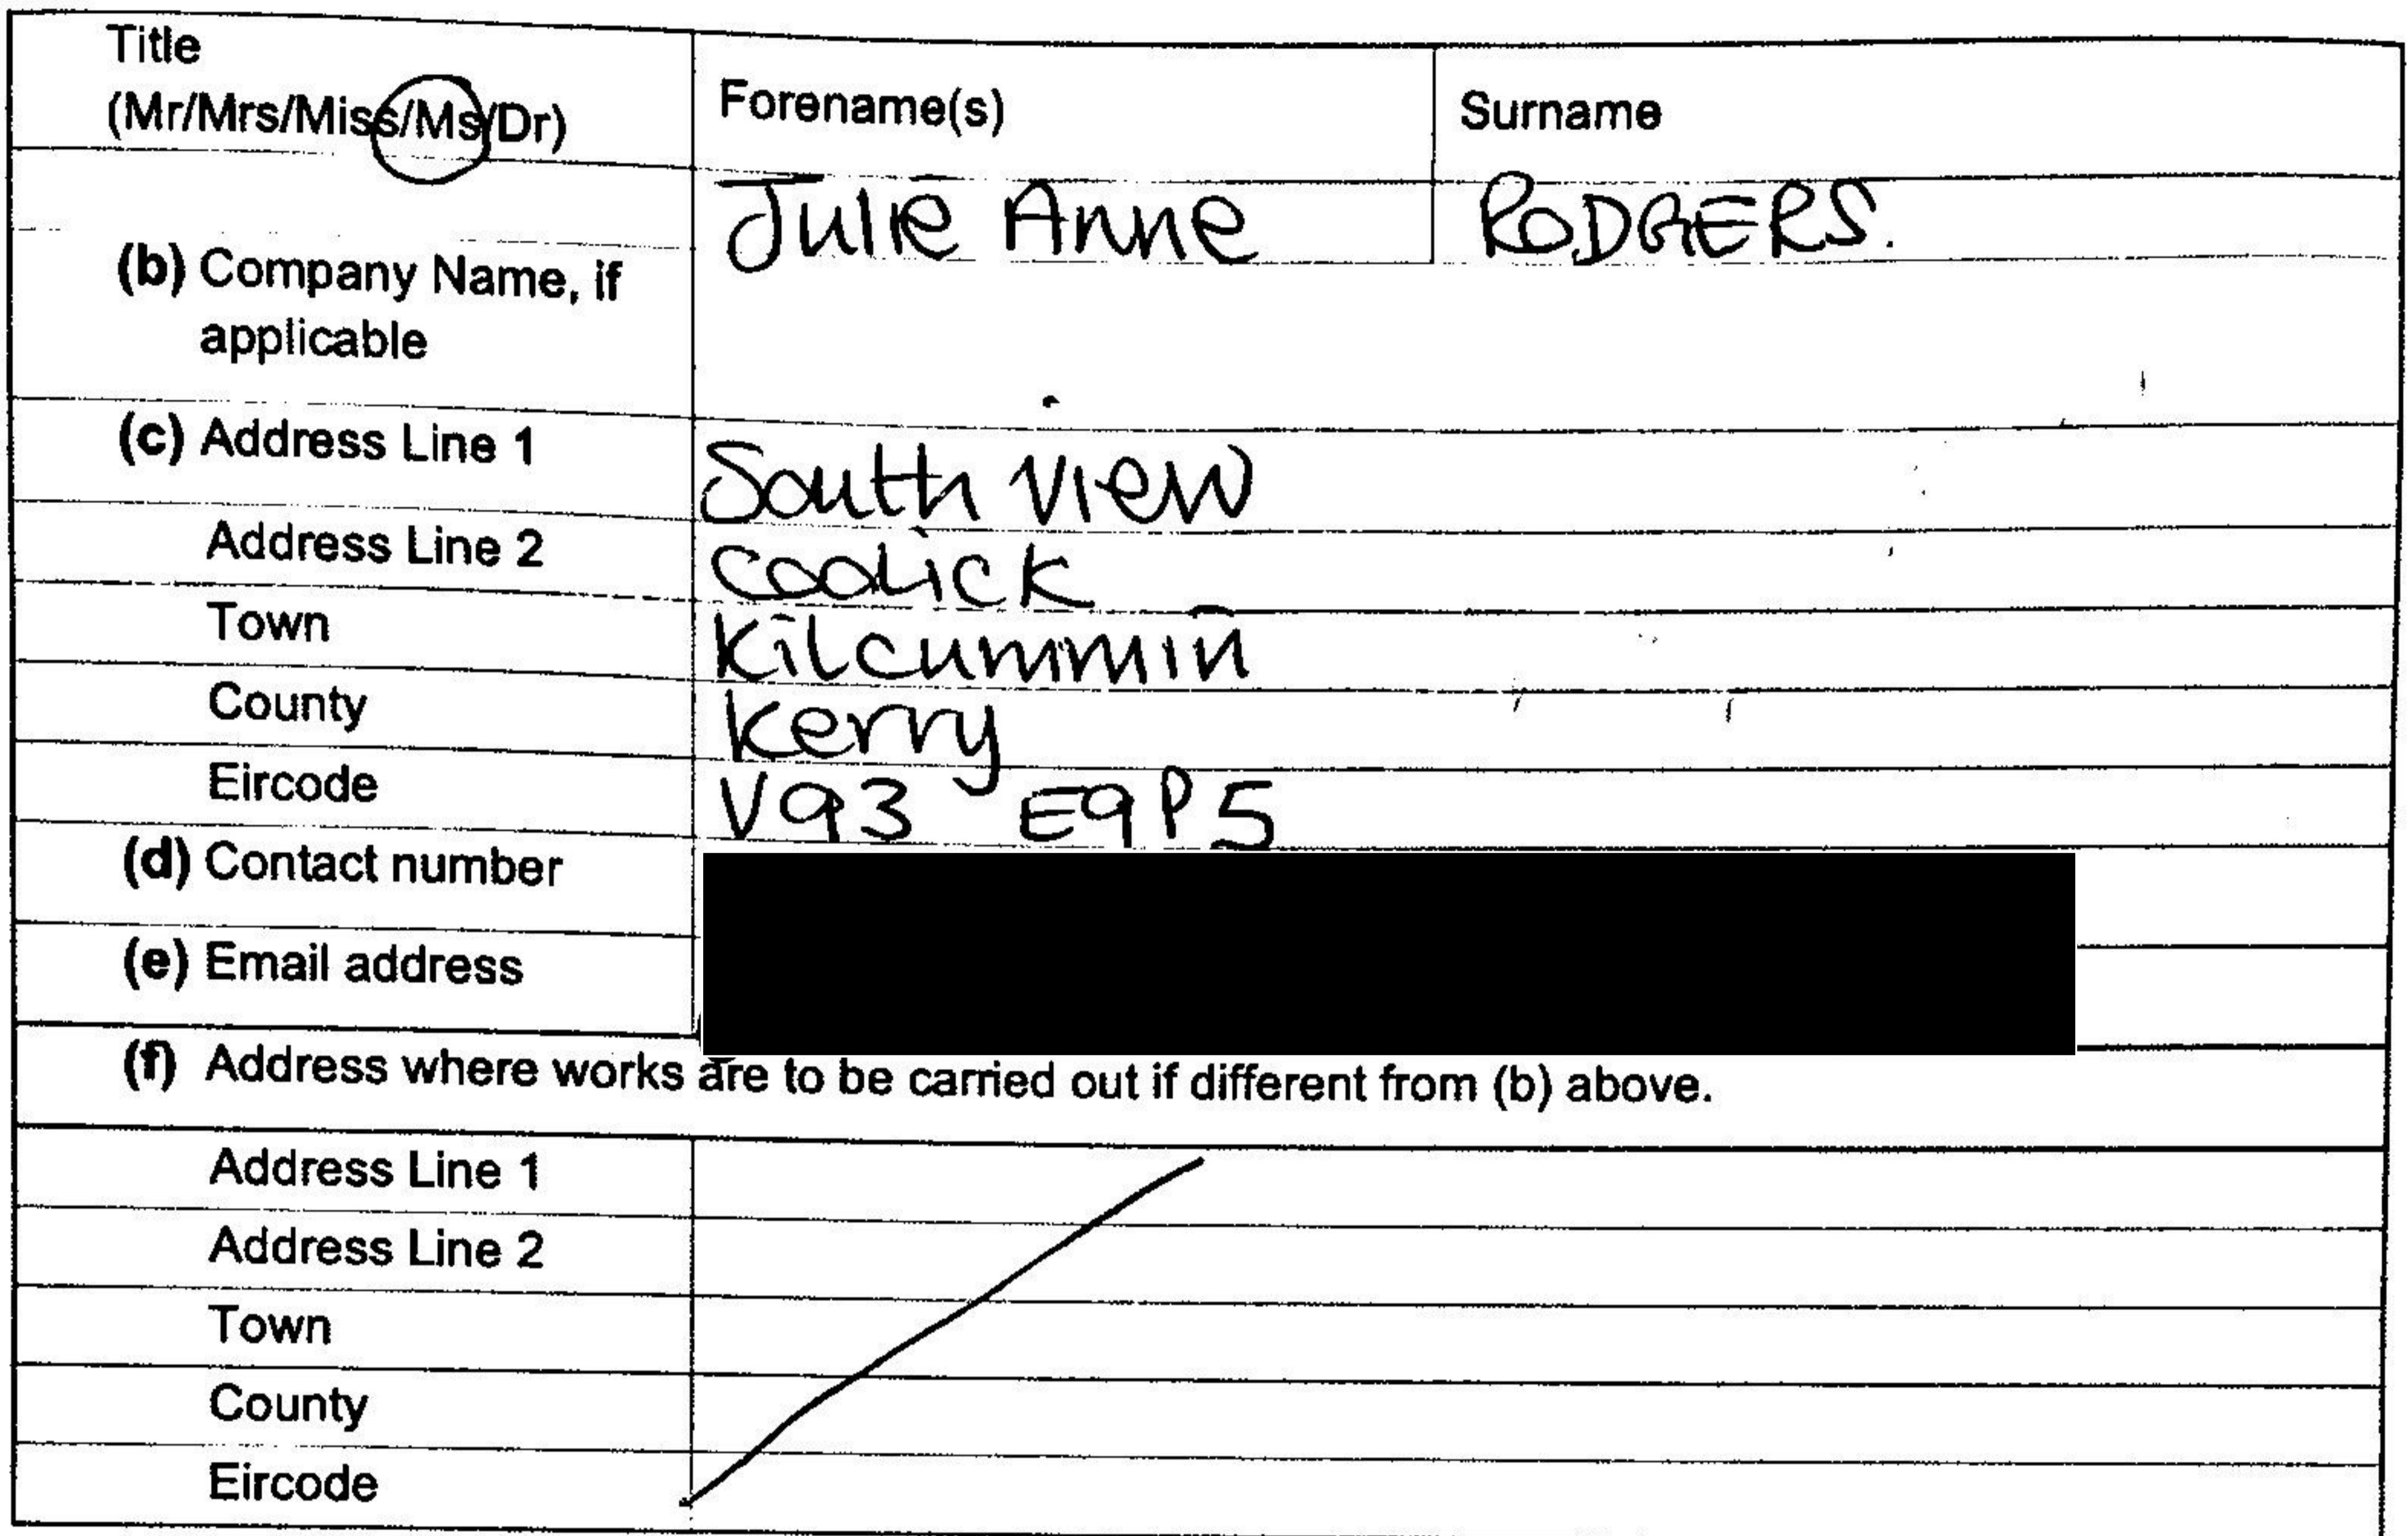 Title
(Mr/Mrs/Miss/Ms/Dr) Forename(s) Surname
Julie Anne RODGERS.
(b) Company Name, if
applicable
(c) Address Line 1 South View
Address Line 2 Coolick
Town Kilcummin
County Kerry
Eircode V93 E9P5
(d) Contact number
(e) Email address
(f) Address where works are to be carried out if different from (b) above.
Address Line 1
Address Line 2
Town
County
Eircode